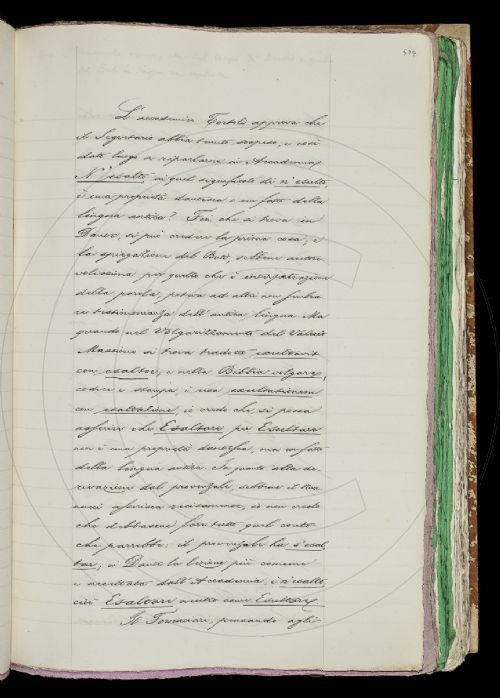 474
L'accademico Tortoli approva che
il Segretario abbia tenuto sospeso, e così
dato luogo a riparlarne in Accademia,
N'esalto, in quel significato di n'esulto,
è una proprietà dantesca o un fatto della
lingua antica? Fin che si trova in
Dante, si può credere la prima cosa, e
la spiegazione del Buti, sebbene autore-
volissima per quello che è interpetrazione
della parola, poteva ad altri non sembra-
re testimonianza dell'antica lingua. Ma
quando nel Volgarizzamento del Valerio
Massimo si trova tradotto exultavit
con esaltoe, e nella Bibbia volgare,
codici e stampa, è una exultationem
con esaltazione, io credo che si possa
asserire che Esaltare per Esultare
non è una proprietà dantesca, ma un fatto
della lingua antica. In quanto alla de-
rivazione dal provenzale, sebbene il Nan-
nucci asserisca recisamente, io non credo
che debbasene fare tutto quel conto
che parrebbe: il provenzale ha s'esal-
tar, in Dante la lezione più comune
e accettata dall'Accademia, è n'esalto,
cioè Esaltare neutro come Esultare.
Il Tommaseo, pensando agli